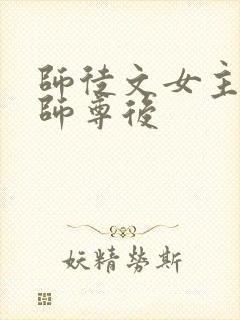 師徒文女主
師尊後
妖精勞斯